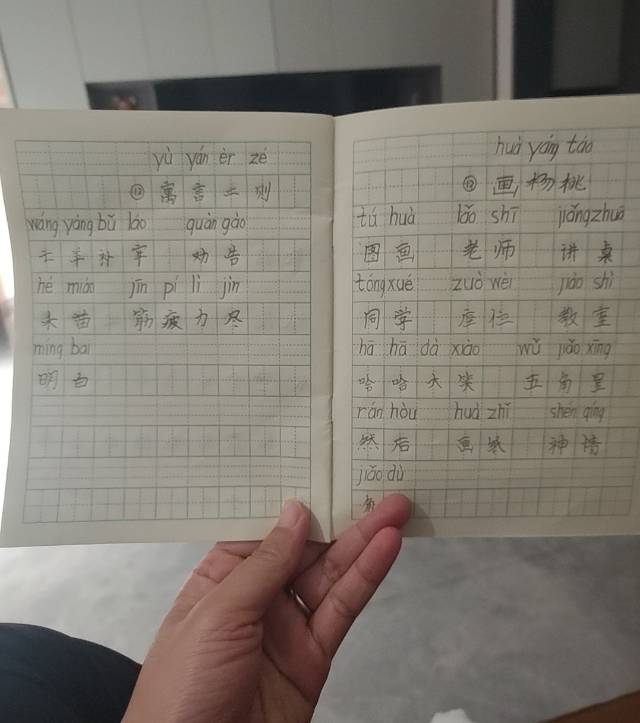 yù yán èr zé
⑫ 寓言二则
wáng yáng bǔ láo quàn gào
亡羊补牢 劝告
hé miáo jīn pí lì jìn
禾苗 筋疲力尽
míng bai
明白
huà yáng táo
⑬ 画杨桃
tú huà lǎo shī jiǎng zhuō
图画 老师 讲桌
tóng xué zuò wèi jiào shì
同学 座位 教室
hā hā dà xiào wǔ jiǎo xīng
哈哈大笑 五角星
rán hòu huà zhǐ shén qíng
然后 画纸 神情
jiǎo dù
角